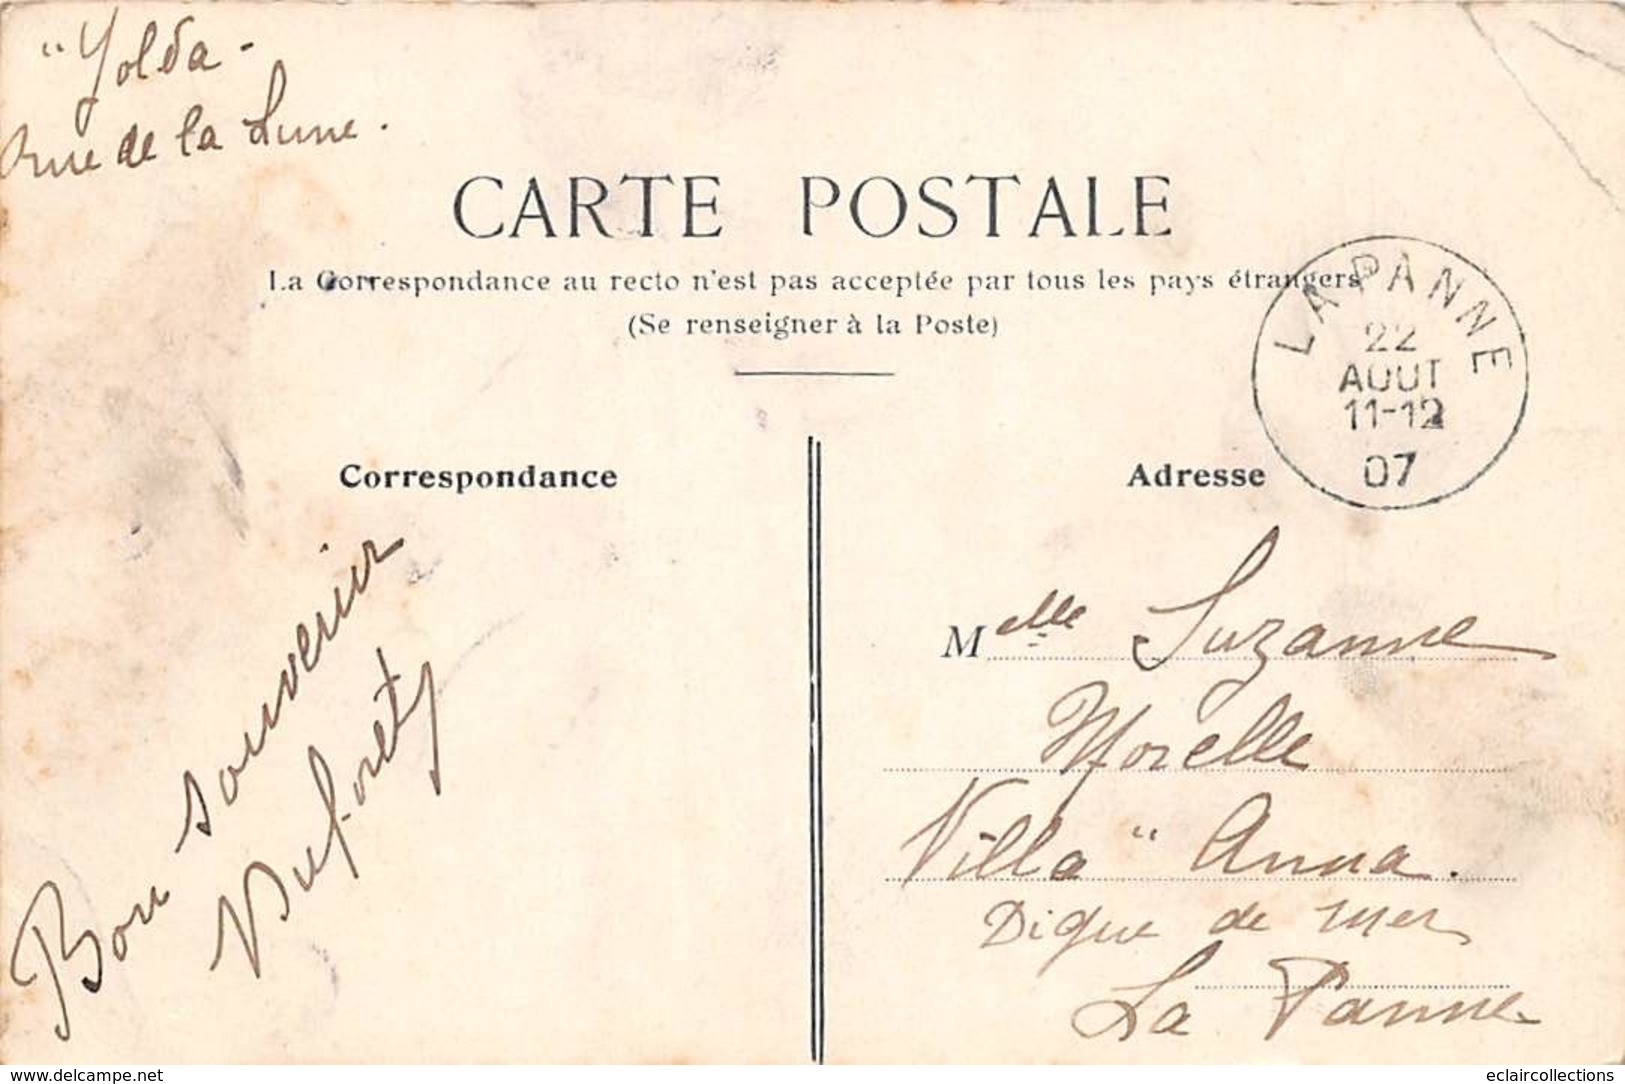 "Yolda -
Rue de la Lune.
CARTE POSTALE
La Correspondance au recto n'est pas acceptée par tous les pays étrangers
(Se renseigner à la Poste)
LA PANNE
22
AOUT
11-12
07
Correspondance
Adresse
Bon souvenir
Melle Suzanne
Morelle
Villa "Anna.
Digue de mer
La Panne
www.delcampe.net
eclaircollections